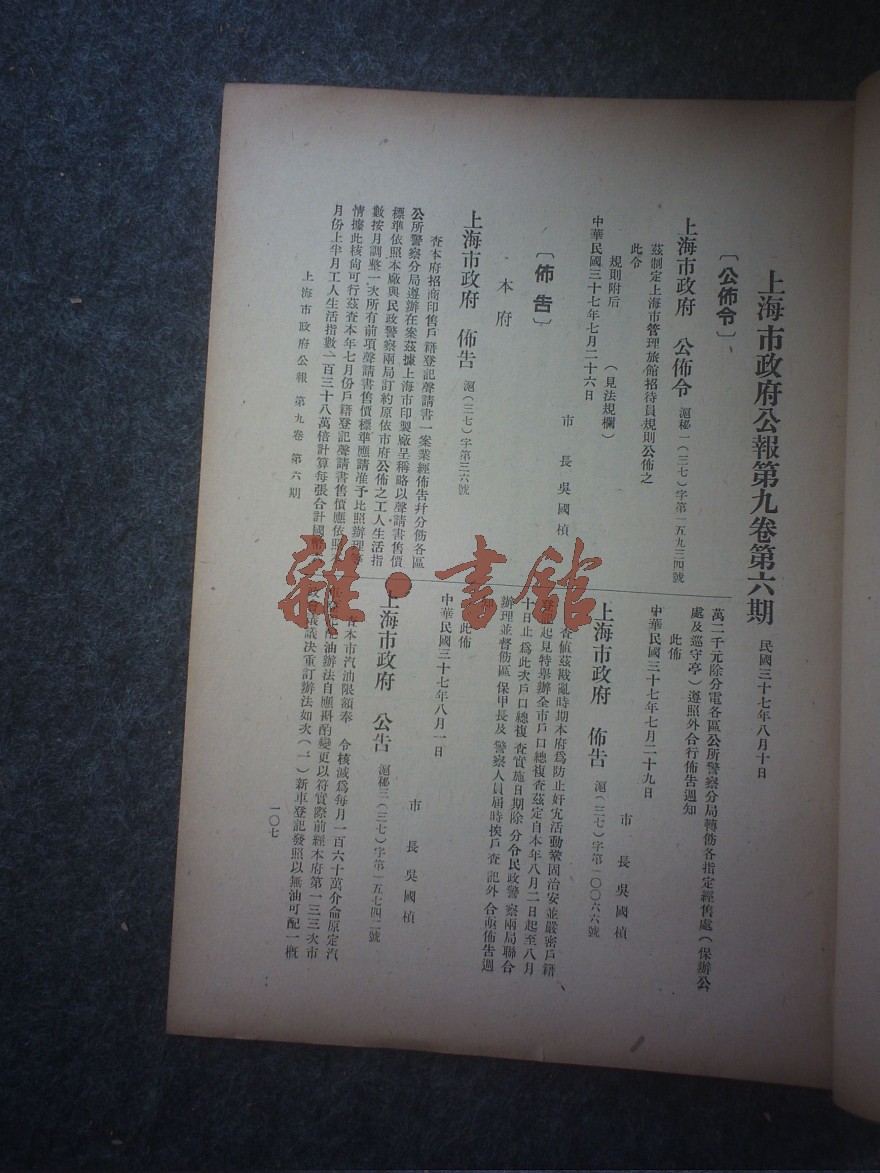 上海市政府公報第九卷第六期
民國三十七年八月十日
〔公佈令〕
上海市政府 公佈令 滬秘一(三七)字第一五九三四號
茲制定上海市管理旅館招待員規則公佈之
此令
規則附后 (見法規欄)
中華民國三十七年七月二十六日
市長 吳國楨
〔佈告〕
本府
上海市政府 佈告 滬(三七)字第三六號
查本府招商印售戶籍登記聲請書一案業經佈告幷分飭各區
公所警察分局遵辦在案茲據上海市印製廠呈稱略以聲請書售價
標準依照本廠與民政警察兩局訂約原依市府公佈之工人生活指
數按月調整一次所有前項聲請書售價標準應請准予比照辦理等
情據此核尙可行茲查本年七月份戶籍登記聲請書售價應依照
月份上半月工人生活指數一百三十八萬倍計算每張合計國幣
萬二千元除分電各區公所警察分局轉飭各指定經售處(保辦公
處及巡守亭)遵照外合行佈告週知
此佈
中華民國三十七年七月二十九日
市長 吳國楨
上海市政府 佈告 滬(三七)字第一〇〇六六號
查値茲戡亂時期本府爲防止奸宄活動鞏固治安並嚴密戶籍
登記起見特舉辦全市戶口總複查茲定自本年八月二日起至八月
十日止爲此次戶口總複查實施日期除分令民政警察兩局聯合
辦理並督飭區保甲長及警察人員屆時挨戶查記外合亟佈告週
此佈
中華民國三十七年八月一日
市長 吳國楨
上海市政府 公告 滬秘三(三七)字第一五七四二號
查本市汽油限額奉 令核減爲每月一百六十萬介侖原定汽
配油辦法自應斟酌變更以符實際前經本府第一三三次市
議決重訂辦法如次(一)新車登記發照以無油可配一概
上海市政府公報 第九卷 第六期
一〇七
雜·書館